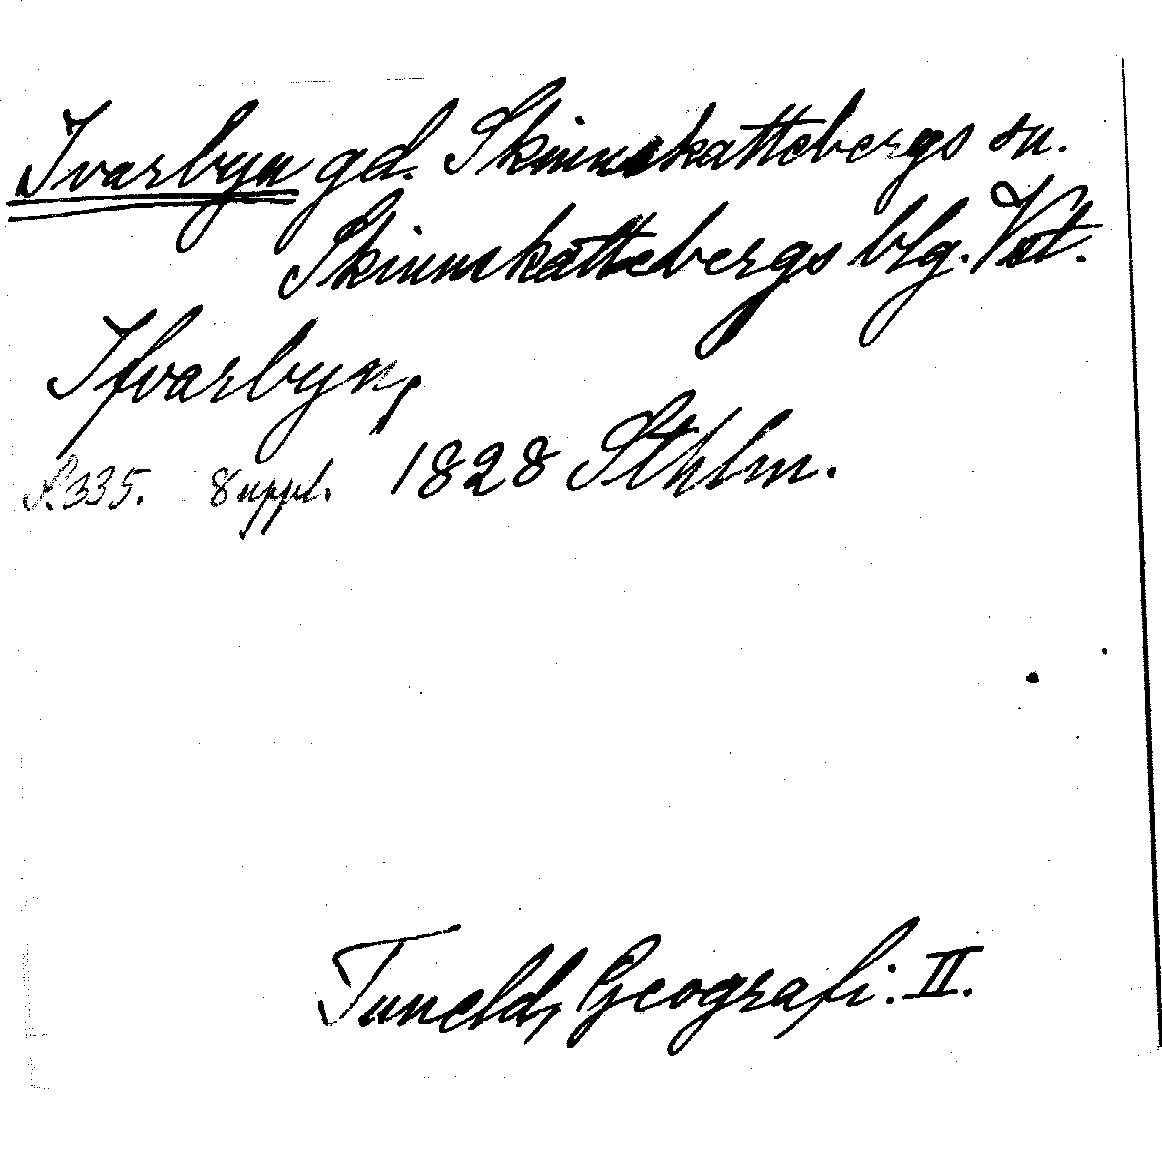 Ivarbyn gd. Skinnskattebergs sn.
Skinnskattebergs blg. Vstt.
Ifvarbyn,
S. 335. 8 uppl. 1828 Sthlm.
Tuneld, Geografi. II.